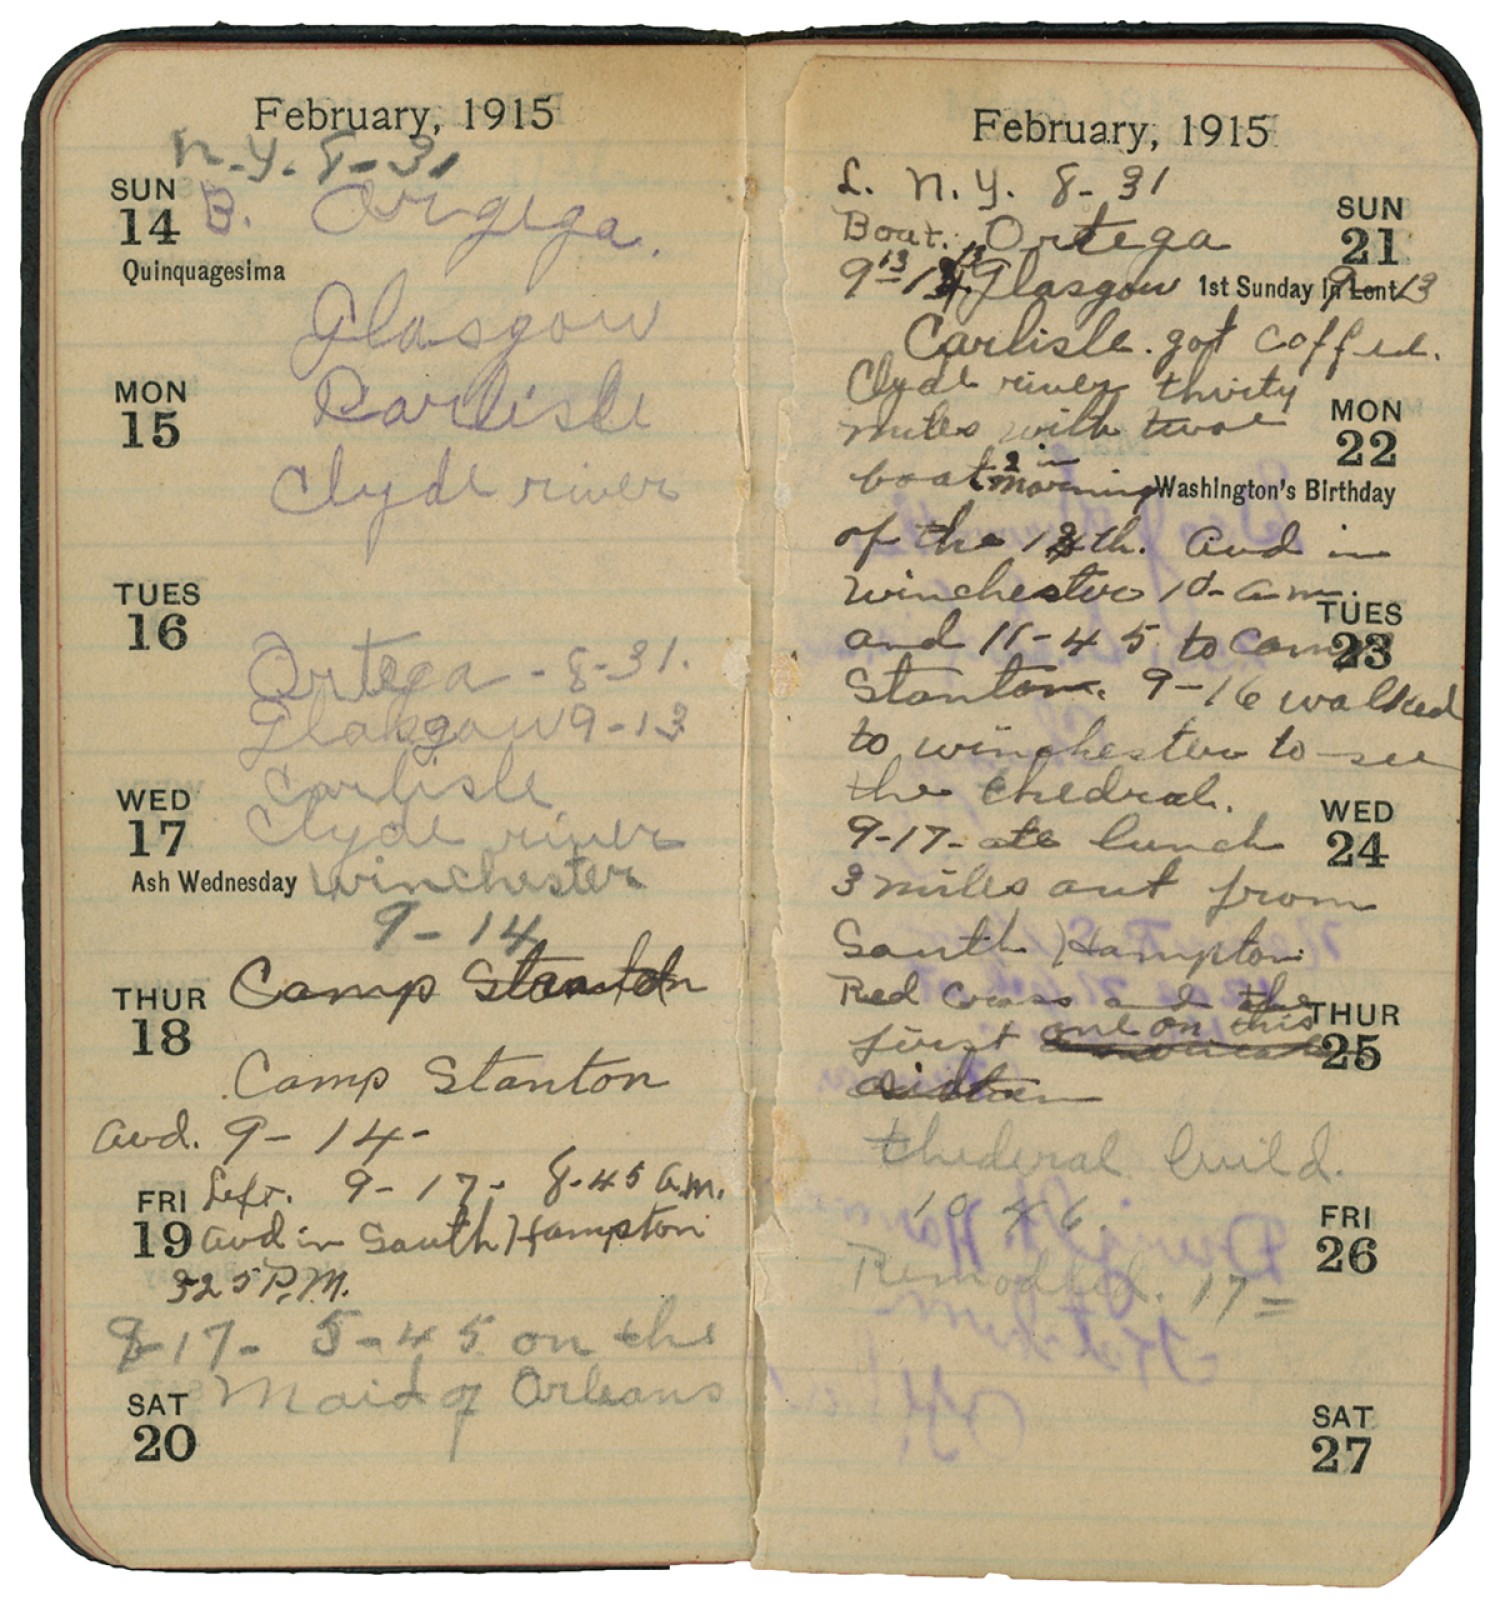 February, 1915
N.Y. 8-31
SUN
14 B. Orgega.
Quinquagesima
Glasgow
MON
15 Carlisle
Clyde river
TUES
16
Ortega - 8-31.
Glasgow 9-13
Carlisle
WED
17 Clyde river
Ash Wednesday Winchester
9-14
THUR
18 Camp Stanton
Camp Stanton
Avd. 9-14-
FRI Left. 9-17- 8-45 a.m.
19 avd in South Hampton
325 P.M.
9-17- 5-45 on the
SAT Maid of Orleans
20
February, 1915
L. N.Y. 8-31
SUN
21
Boat. Ortega
9-13 Glasgow 1st Sunday in Lent 9-13
Carlisle. got coffee.
Clyde river thirty
MON
22
miles with
boat 2 in morning Washington's Birthday
of the 14th. Avd in
Winchester 10- a.m.
TUES
23
and 11-45 to camp
Stanton. 9-16 walked
to winchester to see
the chedral.
WED
24
9-17- ate lunch
3 miles out from
South Hampton
Red Cross and the
THUR
25
first one on this
thederal build.
FRI
26
Remodled. 17=
SAT
27